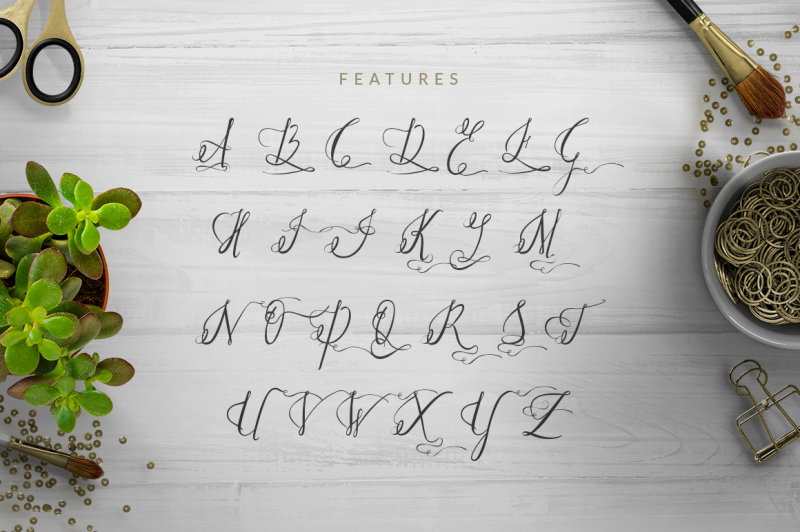 FEATURES
A B C D E F G
H I J K L M
N O P Q R S T
U V W X Y Z